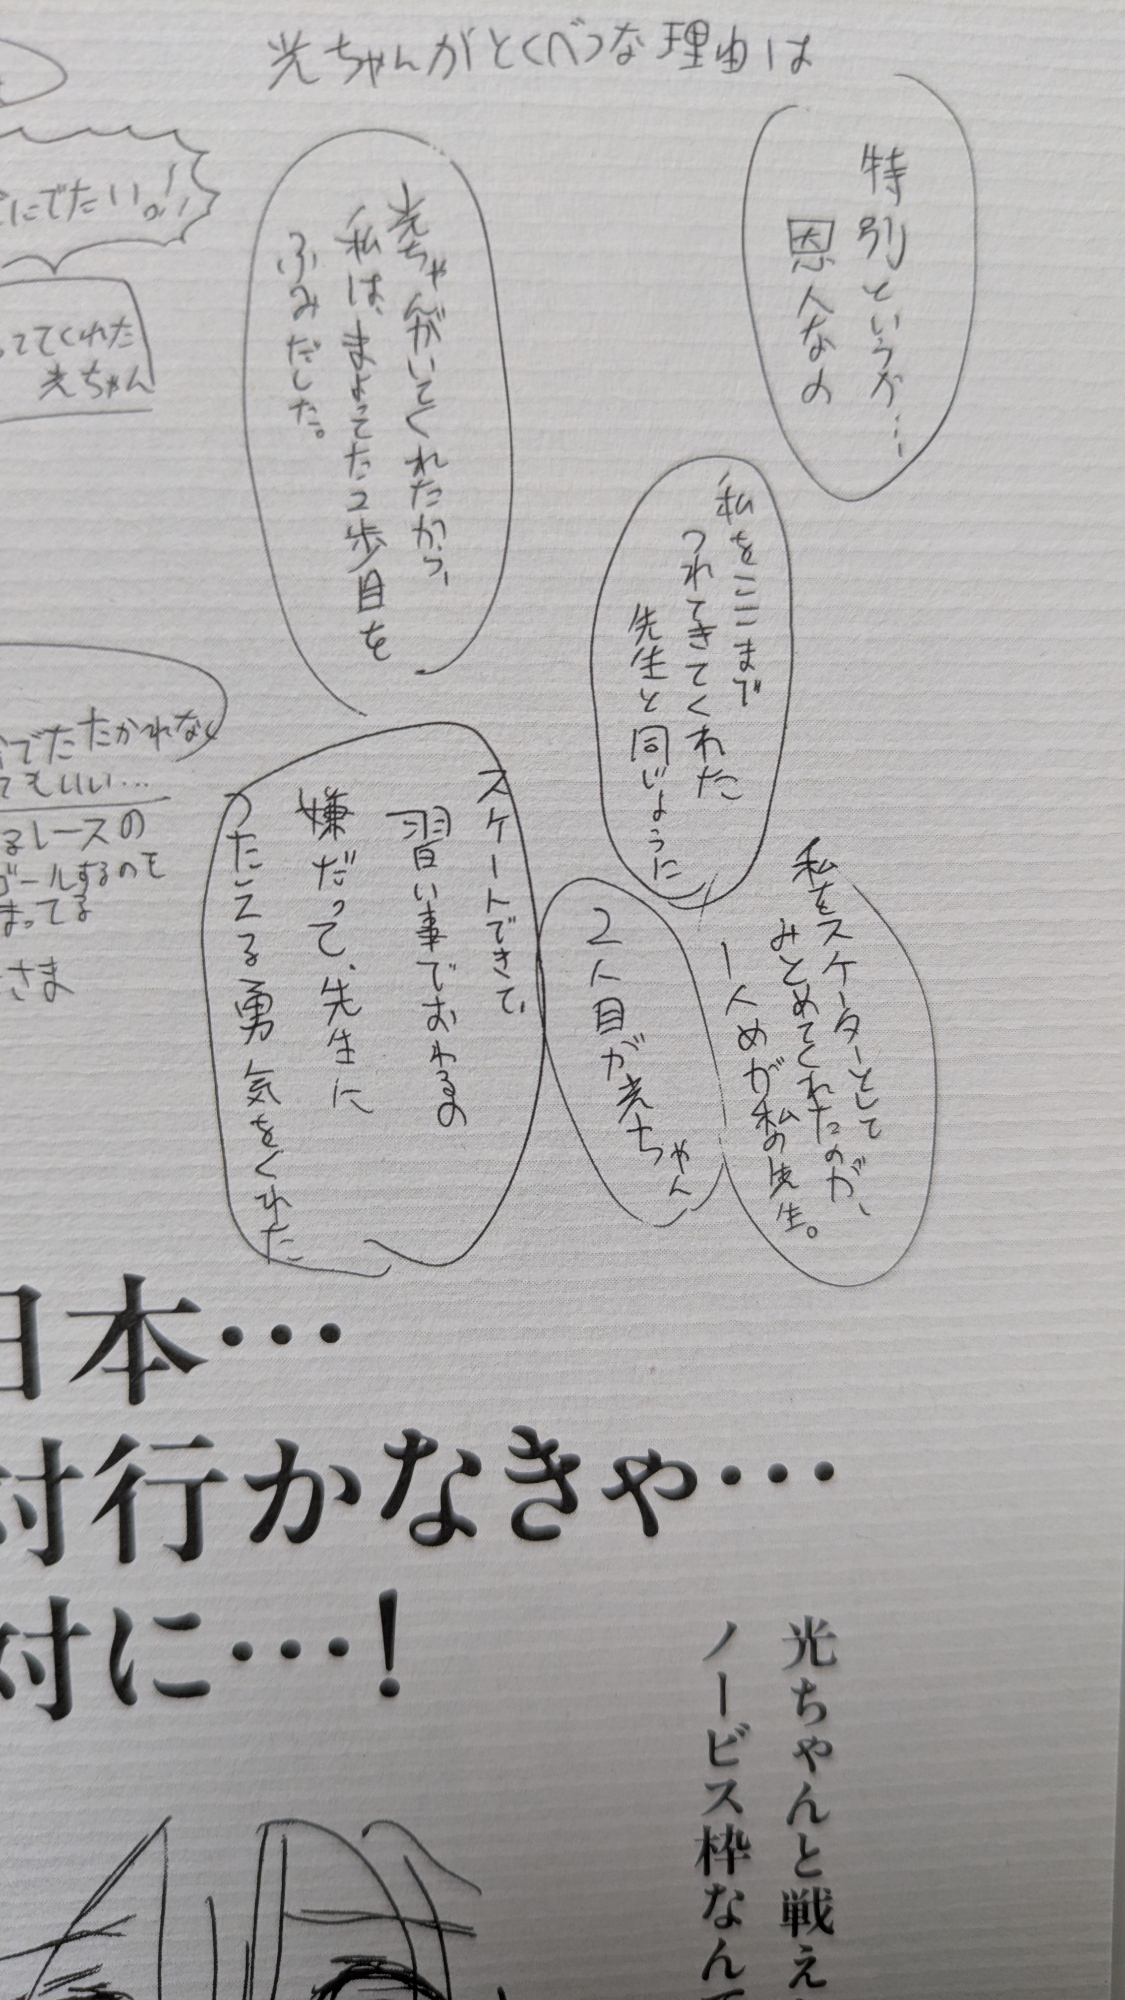 光ちゃんがとくべつな理由は
特別というか…
恩人なの
私をここまで
つれてきてくれた
先生と同じように
私をスケーターとして
みとめてくれたのが、
1人めが私の先生。
2人目が光ちゃん
光ちゃんがいてくれたから、
私は、まよってた2歩目を
ふみだした。
スケートできて、
習い事でおわるの
嫌だって、先生に
つたえる勇気をくれた
にでたい。!!
ってくれた
光ちゃん
でたたかれなく
てもいい…
るレースの
ゴールするのを
まってる
さま
日本…
対行かなきゃ…
対に…!
光ちゃんと戦え
ノービス枠なんて